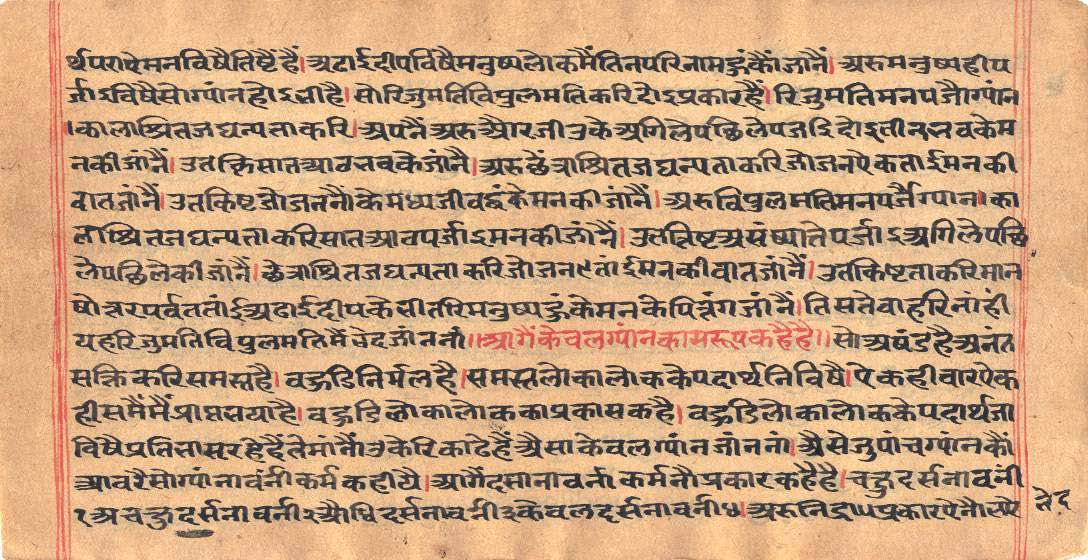 र्थपराऐमनविषैतिष्टैंहैं। अढाईदीपविषैमनुष्यलोकमैंतिनपरिनामहुंकौंजांनैं। अरुमनुष्यहीप
र्जाऽविषैसोग्यांनहोऽहीहै। सोरिजुमतिविपुलमतिकरिदोऽप्रकारहैं। रिजुमतिमनपर्जैग्यांन
।कालाश्रितजघन्यताकरि। अपनैंअरुऔरजीउकेअगिलेपछिलेपजडिदोइतीनभवकेम
नकीजांनैं। उतकिसातआठभवकेजांनै। अरुछैंत्राश्रितजघन्यताकरिजोजनऐकतांईमनकी
वातजांनैं। उतकिष्टजोजननौंकेमध्यजीवहुंकेमनकीजांनैं। अरुविपुलमतिमनपर्जैग्यान। का
लाश्रितजघन्यताकरिसातआठपर्जाऽमनकीजांनैं। उतक्रिष्टअसंष्यातेपर्जाऽअगिलेपछि
लेपछिलेकीजांनैं। छेत्राश्रितजघन्यताकरिजोजन९तांईमनकीवातजांनैं। उतकिष्टताकरिमान
षोत्तरपर्वततांईअढाईदीपकेभीतरिमनुष्यहुंकेमनकेपिन्नंगजांनैं। तिसतेवाहरिनांहीं
यहरिजुमतिविपुलमतिमैंभेदजांननौं॥ आगैंकेवलग्यांनकासरूपकहैहै॥ सोअषंडहैअनंत
सक्तिकरिसमस्तहै। वहुडिनिर्मलहै। समस्तलोकालोककेपदार्थनिविषै। ऐकहीवारऐक
हीसमैंमैंप्राप्तभयाहै। वहुडिलोकालोककाप्रकासकहै। वहुडिलोकालोककेपदार्थजा
विषैप्रतिभासरहेहैंतेमांनौंउकेरिकाढेहैंऐसाकेवलग्यांनजांननां। ऐसेजुपांचग्यांनकौं
आवरैसोग्यांनावंनीकर्मकहीयै। आगैंदसानावर्नीकर्मनौप्रकारकहैहै। चहुदर्सनावनी
१अचहुदर्सनावनी२औधिदर्सनावनी३केवलदर्सनावनी४। अरुनिद्रा५प्रकारऐनौ
भेद